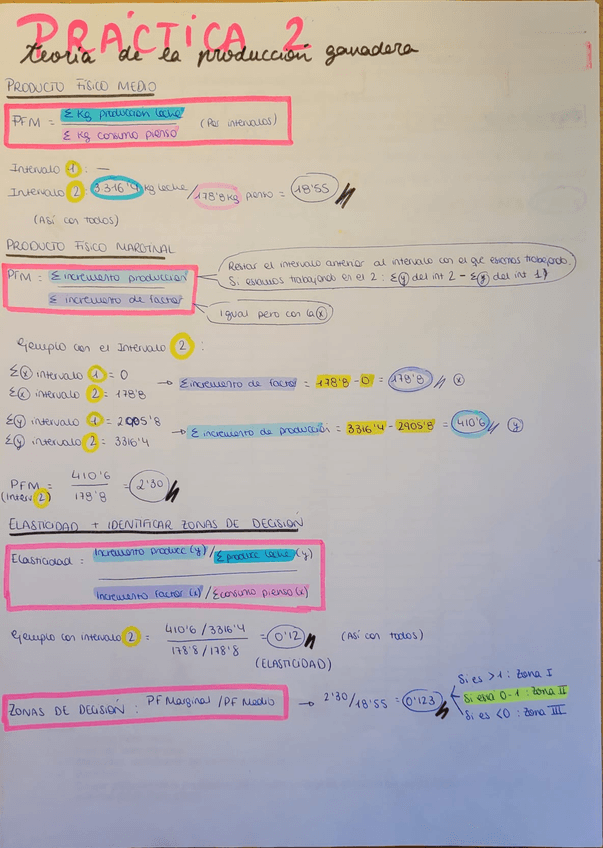 PRÁCTICA 2
teoría de la producción ganadera
PRODUCTO FÍSICO MEDIO
PFM = Σ Kg producción leche / Σ Kg consumo pienso (Por intervalos)
Intervalo 1: —
Intervalo 2: 3316'4 kg leche / 178'8 kg pienso = 18'55
(Así con todos)
PRODUCTO FÍSICO MARGINAL
PFM = Σ incremento producción / Σ incremento de factor
Restar el intervalo anterior al intervalo con el que estemos trabajando.
Si estamos trabajando en el 2: Σ(y) del int 2 - Σ(y) del int 1)
Igual pero con la (x)
Ejemplo con el Intervalo 2:
Σ(x) intervalo 1 = 0
Σ(x) intervalo 2 = 178'8
→ Σ incremento de factor = 178'8 - 0 = 178'8 (x)
Σ(y) intervalo 1 = 2905'8
Σ(y) intervalo 2 = 3316'4
→ Σ incremento de producción = 3316'4 - 2905'8 = 410'6 (y)
PFM (Interv 2) = 410'6 / 178'8 = 2'30
ELASTICIDAD + IDENTIFICAR ZONAS DE DECISIÓN
Elasticidad = Incremento producc (y) / Σ producc leche (y)
Incremento factor (x) / Σ consumo pienso (x)
Ejemplo con intervalo 2 = 410'6 / 3316'4 / 178'8 / 178'8 = 0'12 (Así con todos)
(ELASTICIDAD)
ZONAS DE DECISIÓN: PF Marginal / PF Medio → 2'30 / 18'55 = 0'123
Si es >1: Zona I
Si está 0-1: Zona II
Si es <0: Zona III